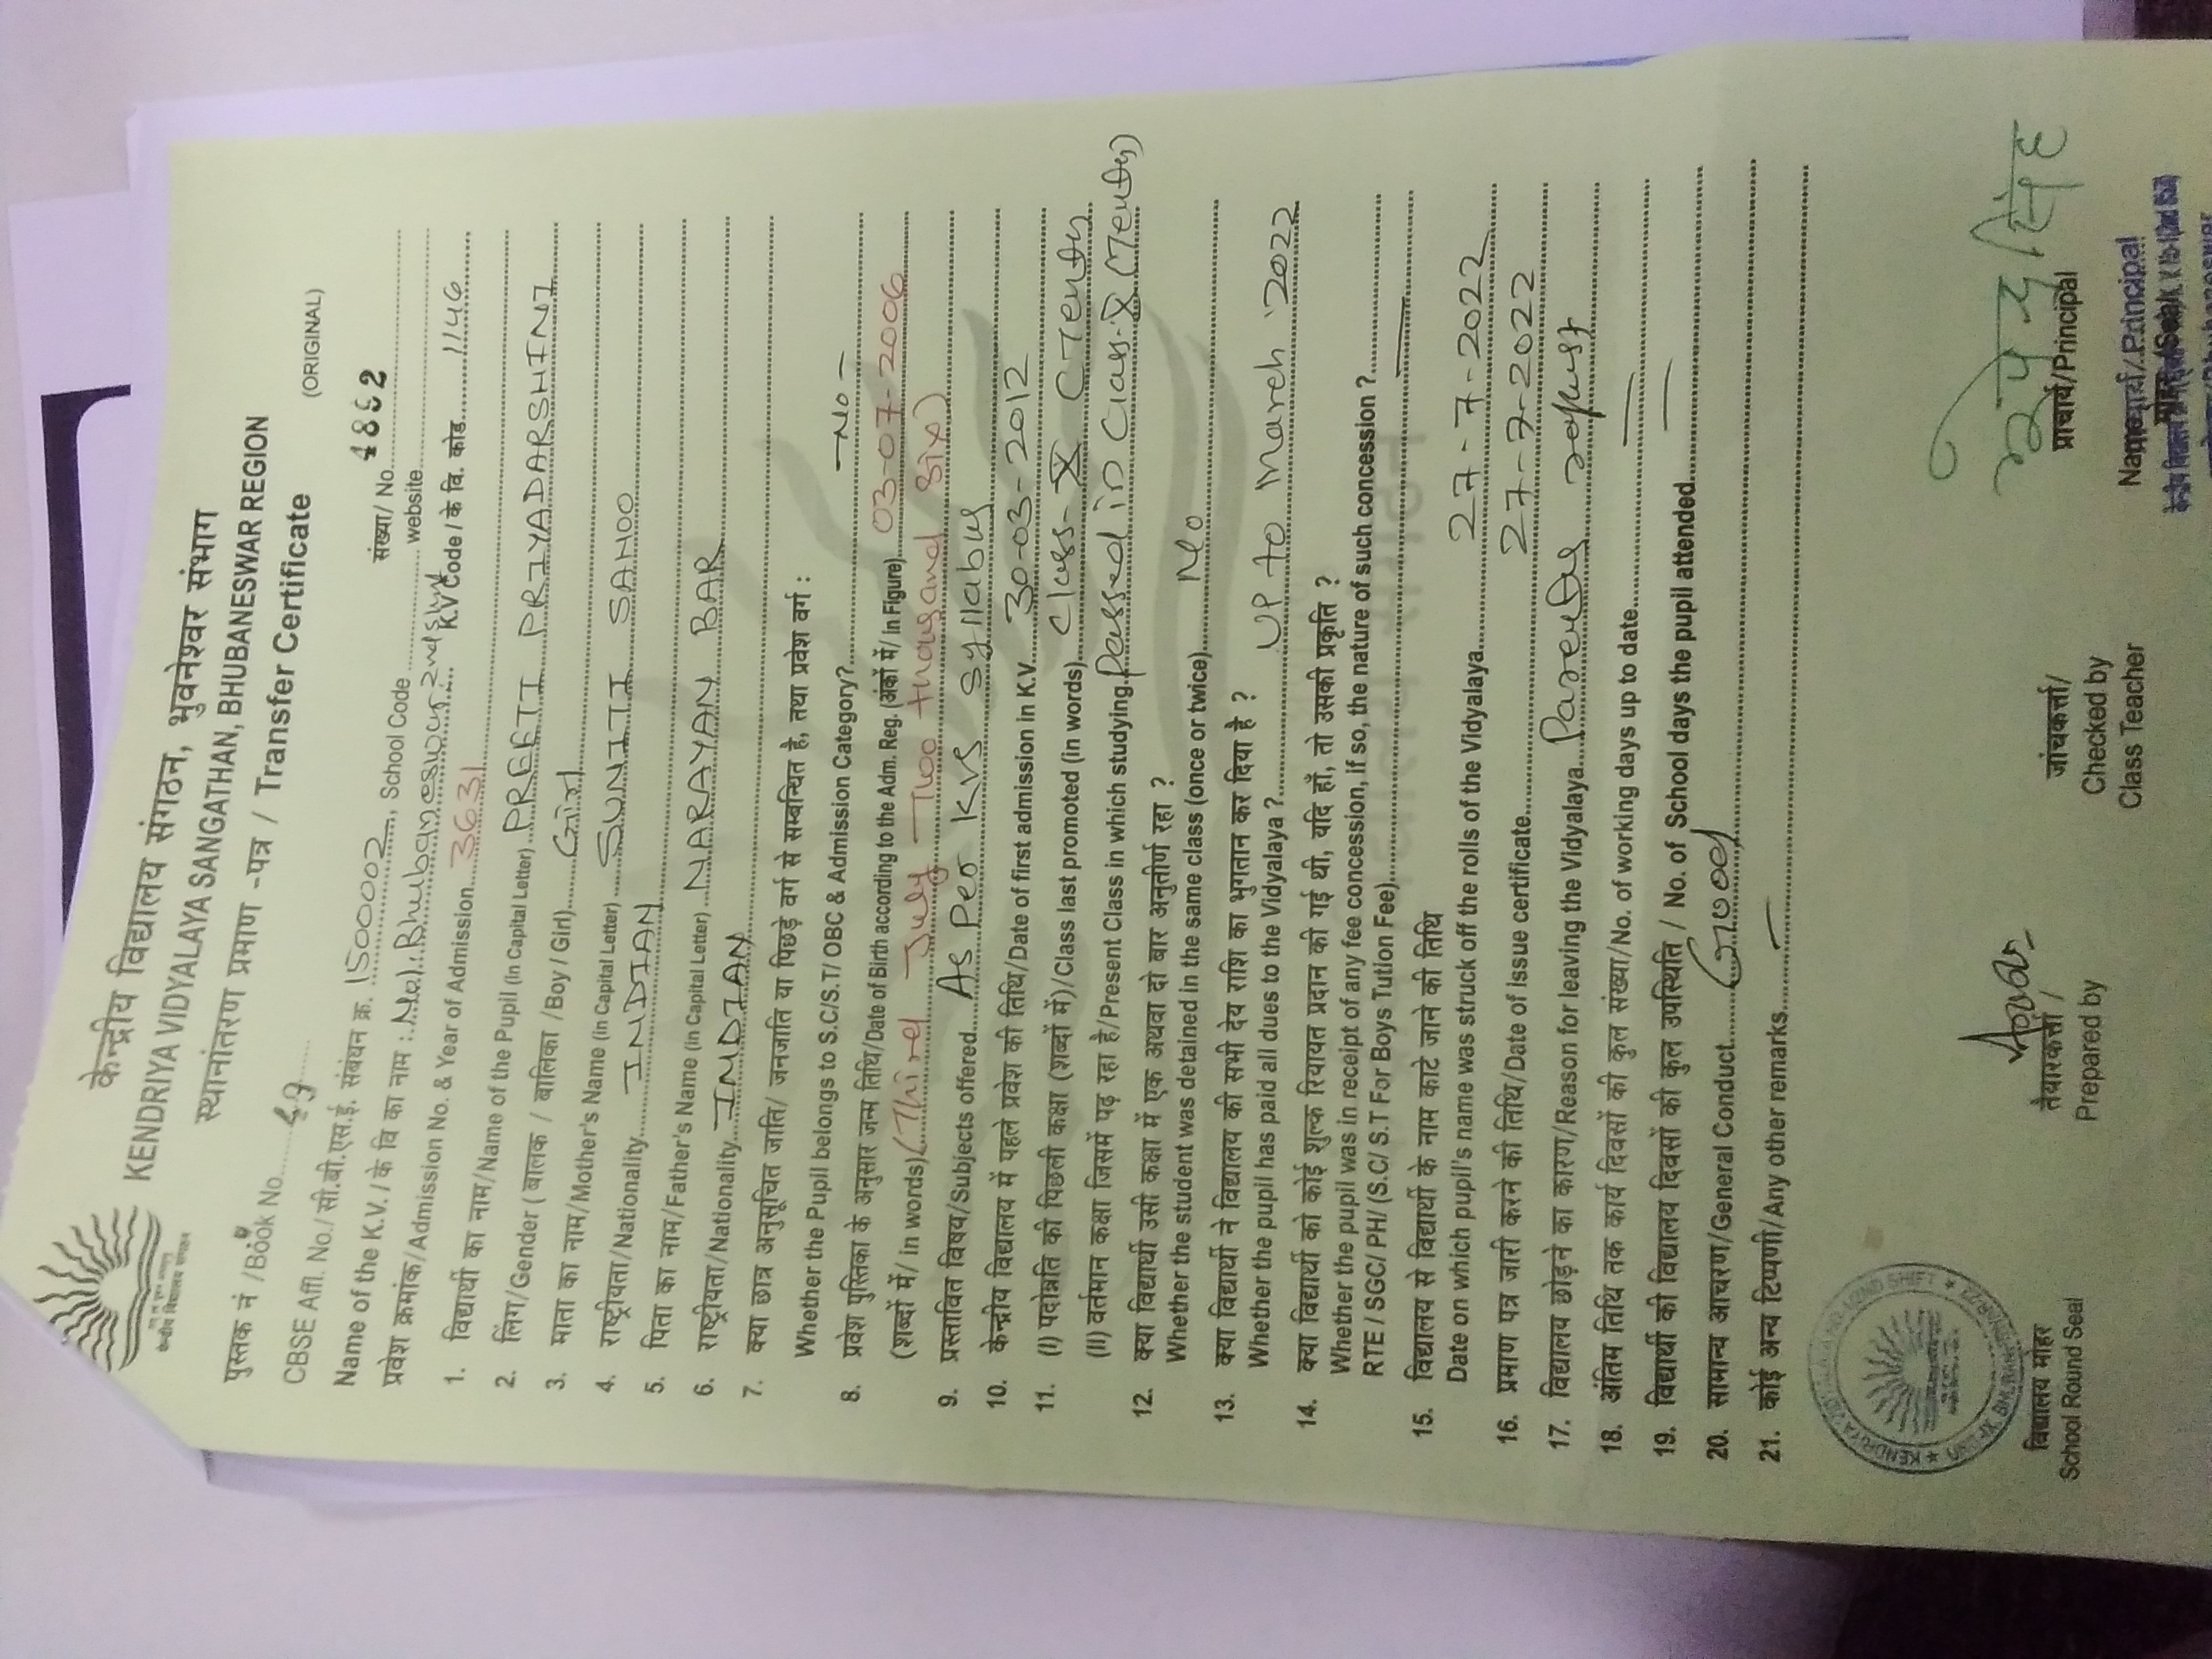 केन्द्रीय विद्यालय संगठन, भुवनेश्वर संभाग
KENDRIYA VIDYALAYA SANGATHAN, BHUBANESWAR REGION
स्थानांतरण प्रमाण -पत्र / Transfer Certificate
(ORIGINAL)
केन्द्रीय विद्यालय संगठन
पुस्तक नं /Book No. 49 संख्या/ No. 4862
CBSE Affi. No./ सी.बी.एस.ई. संबंधन क्र. 1500002, School Code website
Name of the K.V. / के वि का नाम : No1. Bhubaneswar 2nd Shift K.V Code / के वि. कोड. 1146
प्रवेश क्रमांक/Admission No. & Year of Admission 3631
1. विद्यार्थी का नाम/Name of the Pupil (in Capital Letter) PREETI PRIYADARSHINI
2. लिंग/Gender ( बालक / बालिका /Boy / Girl) Girl
3. माता का नाम/Mother's Name (in Capital Letter) SUNITI SAHOO
4. राष्ट्रीयता/Nationality INDIAN
5. पिता का नाम/Father's Name (in Capital Letter) NARAYAN BAR
6. राष्ट्रीयता/Nationality INDIAN
7. क्या छात्र अनुसूचित जाति/ जनजाति या पिछड़े वर्ग से सम्बन्धित है, तथा प्रवेश वर्ग :
Whether the Pupil belongs to S.C/S.T/ OBC & Admission Category? -No-
8. प्रवेश पुस्तिका के अनुसार जन्म तिथि/Date of Birth according to the Adm. Reg. (अंकों में/ in Figure) 03-07-2006
(शब्दों में/ in words) (Third July Two thousand Six)
9. प्रस्तावित विषय/Subjects offered As Per KVS Syllabus
10. केन्द्रीय विद्यालय में पहले प्रवेश की तिथि/Date of first admission in K.V. 30-03-2012
11. (I) पदोन्नति की पिछली कक्षा (शब्दों में)/Class last promoted (in words) Class-X (Tenth)
(II) वर्तमान कक्षा जिसमें पढ़ रहा है/Present Class in which studying Passed in Class-X (Tenth)
12. क्या विद्यार्थी उसी कक्षा में एक अथवा दो बार अनुत्तीर्ण रहा ?
Whether the student was detained in the same class (once or twice) No
13. क्या विद्यार्थी ने विद्यालय की सभी देय राशि का भुगतान कर दिया है ?
Whether the pupil has paid all dues to the Vidyalaya ? UP to March '2022
14. क्या विद्यार्थी को कोई शुल्क रियायत प्रदान की गई थी, यदि हाँ, तो उसकी प्रकृति ?
Whether the pupil was in receipt of any fee concession, if so, the nature of such concession ?
RTE / SGC/ PH/ (S.C/ S.T For Boys Tution Fee)
15. विद्यालय से विद्यार्थी के नाम काटे जाने की तिथि
Date on which pupil's name was struck off the rolls of the Vidyalaya 27-7-2022
16. प्रमाण पत्र जारी करने की तिथि/Date of issue certificate 27-7-2022
17. विद्यालय छोड़ने का कारण/Reason for leaving the Vidyalaya Parents request
18. अंतिम तिथि तक कार्य दिवसों की कुल संख्या/No. of working days up to date
19. विद्यार्थी की विद्यालय दिवसों की कुल उपस्थिति / No. of School days the pupil attended
20. सामान्य आचरण/General Conduct Good
21. कोई अन्य टिप्पणी/Any other remarks
विद्यालय मोहर
School Round Seal
तैयारकर्त्ता /
Prepared by
जांचकर्त्ता/
Checked by
Class Teacher
प्राचार्य/Principal